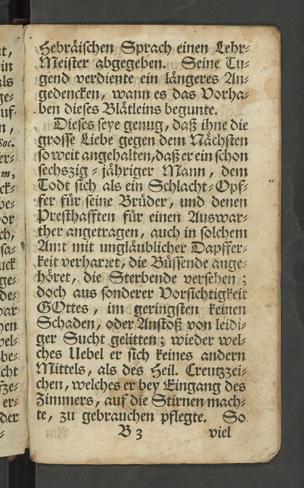 Hebräischen Sprach einen Lehr-
Meister abgegeben. Seine Tu-
gend verdiente ein längeres An-
gedencken, wann es das Vorha-
ben dieses Blätleins begunte.
Dieses seye genug, daß ihne die
grosse Liebe gegen dem Nächsten
so weit angehalten, daß er ein schon
sechszig-jähriger Mann, dem
Todt sich als ein Schlacht-Opf-
fer für seine Brüder, und denen
Presthafften für einen Auswar-
ther angetragen, auch in solchem
Amt mit unglaublicher Dapffer-
keit verharret, die Büssende ange-
höret, die Sterbende versehen;
doch aus sonderer Vorsichtigkeit
GOttes, im geringsten keinen
Schaden, oder Anstoß von leidi-
ger Sucht gelitten; wieder wel-
ches Uebel er sich keines andern
Mittels, als des Heil. Creutzzei-
chen, welches er bey Eingang des
Zimmers, auf die Stirnen mach-
te, zu gebrauchen pflegte. So
B 3 viel